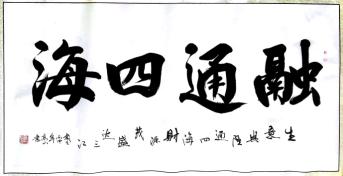 融通四海
生意興隆通四海財源茂盛达三江